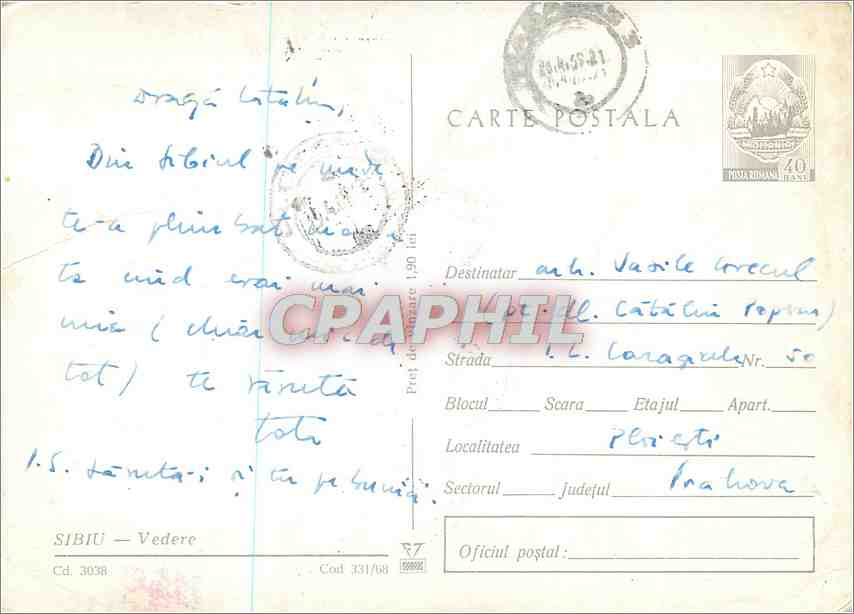 Dragă Cătălin,
Din Sibiul pe unde
te-a plimbat
ta cînd erai mai
mic ( chiar de
tot) te sărută
toti
P.S. Sărută-i și tu pe bunici.
SIBIU — Vedere
Cd. 3038
Cod 331/68
Preț de vînzare 1,90 lei
CARTE POSTALA
POSTA ROMANA 40 BANI
Destinatar arh. Vasile
pt. dl. Cătălin
Strada I. L. Caragiale Nr. 50
Blocul Scara Etajul Apart.
Localitatea Ploiești
Sectorul județul Prahova
Oficiul poștal:
CPAPHIL